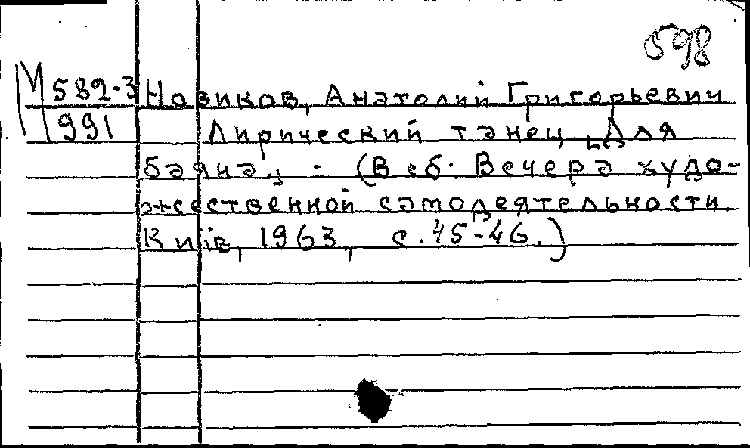 598
М 582-3 Новиков, Анатолий Григорьевич
991 Лирический танец [Для
баяна]. - (В сб. Вечера худо-
жественной самодеятельности.
Київ, 1963, с. 45-46.)